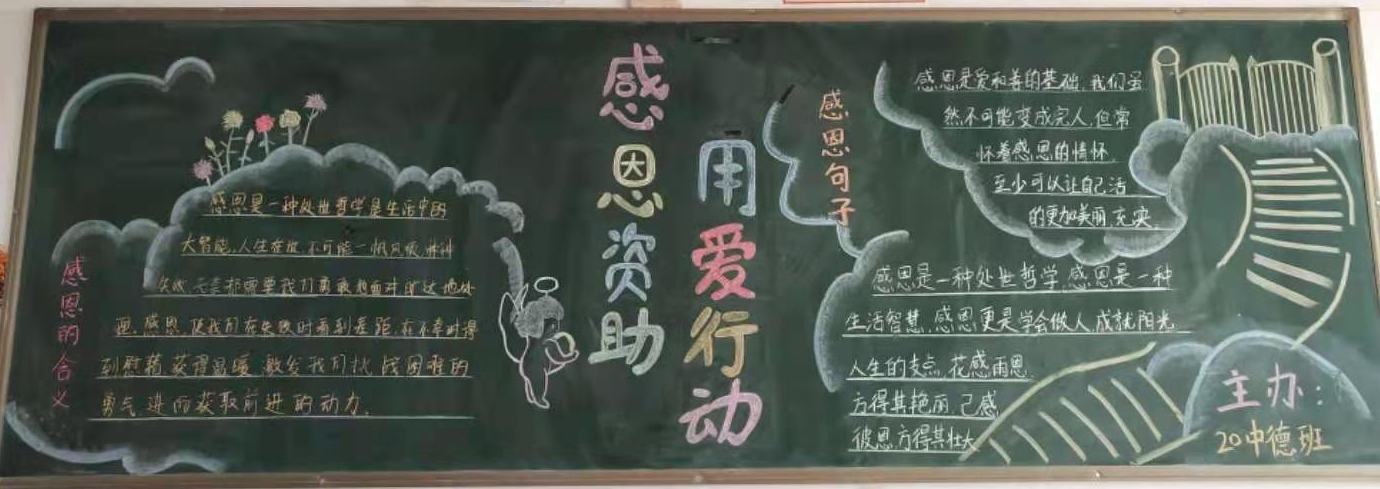 感恩的含义
感恩是一种处世哲学是生活中的
大智能,人生在世,不可能一帆风顺,种种
失败、无奈都需要我们勇敢地面对、豁达地处
理,感恩,使我们在失败时看到差距,在不幸时得
到慰藉获得温暖,激发我们挑战困难的
勇气,进而获取前进的动力。
感恩资助
用爱行动
感恩句子
感恩是爱和善的基础,我们虽
然不可能变成完人,但常
怀着感恩的情怀,
至少可以让自己活
的更加美丽,充实。
感恩是一种处世哲学,感恩是一种
生活智慧,感恩更是学会做人,成就阳光
人生的支点,花感雨恩
方得其艳丽,己感
彼恩方得其壮大
主办:
20中德班